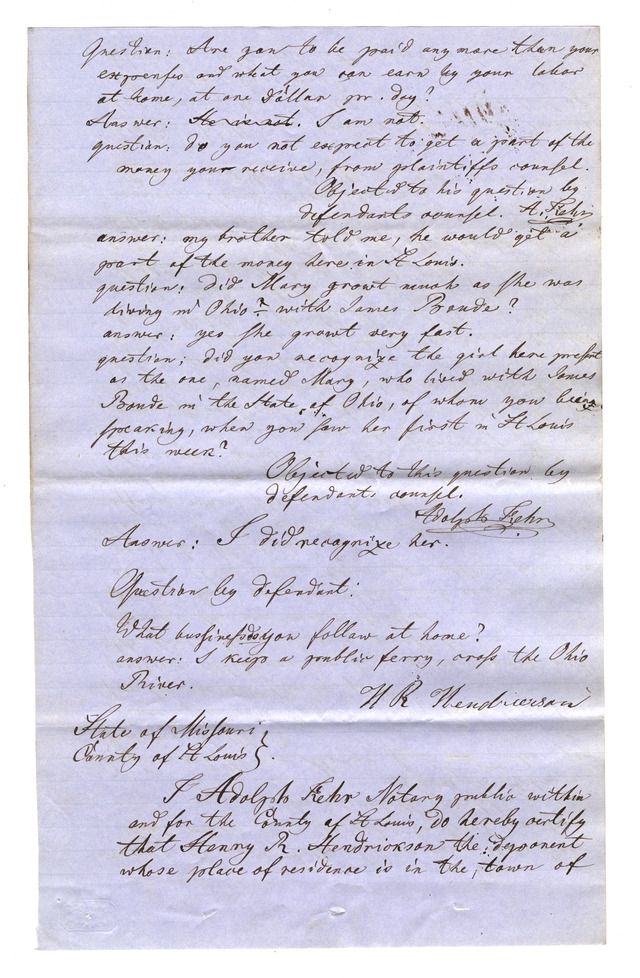 Question: Are you to be paid any more than your
expenses and what you can earn by your labor
at home, at one Dollar pr. day?
Answer: He is not. I am not.
question: do you not expect to get a part of the
money your receive, from plaintiffs counsel.
Objected to his question by
defendants counsel. A. Kehr
answer: my brother told me, he would get a
part of the money here in St Louis.
question: Did Mary growt much as she was
living in Ohio with James Bonde?
answer: yes she growt very fast.
question: did you recognize the girl here present
as the one, named Mary, who lived with James
Bonde in the State of Ohio, of whom you being
speaking, when you saw her first in St Louis
this week?
Objected to this question by
defendants counsel.
Adolph Kehr
Answer: I did recognize her.
Question by defendant:
What bussiness do you follow at home?
answer: I keep a public ferry, cross the Ohio
River.
H R Hendrickson
State of Missouri
County of St Louis }.
I Adolph Kehr Notary public within
and for the County of St Louis, do hereby certify
that Henry R. Hendrickson the deponent
whose place of residence is in the town of